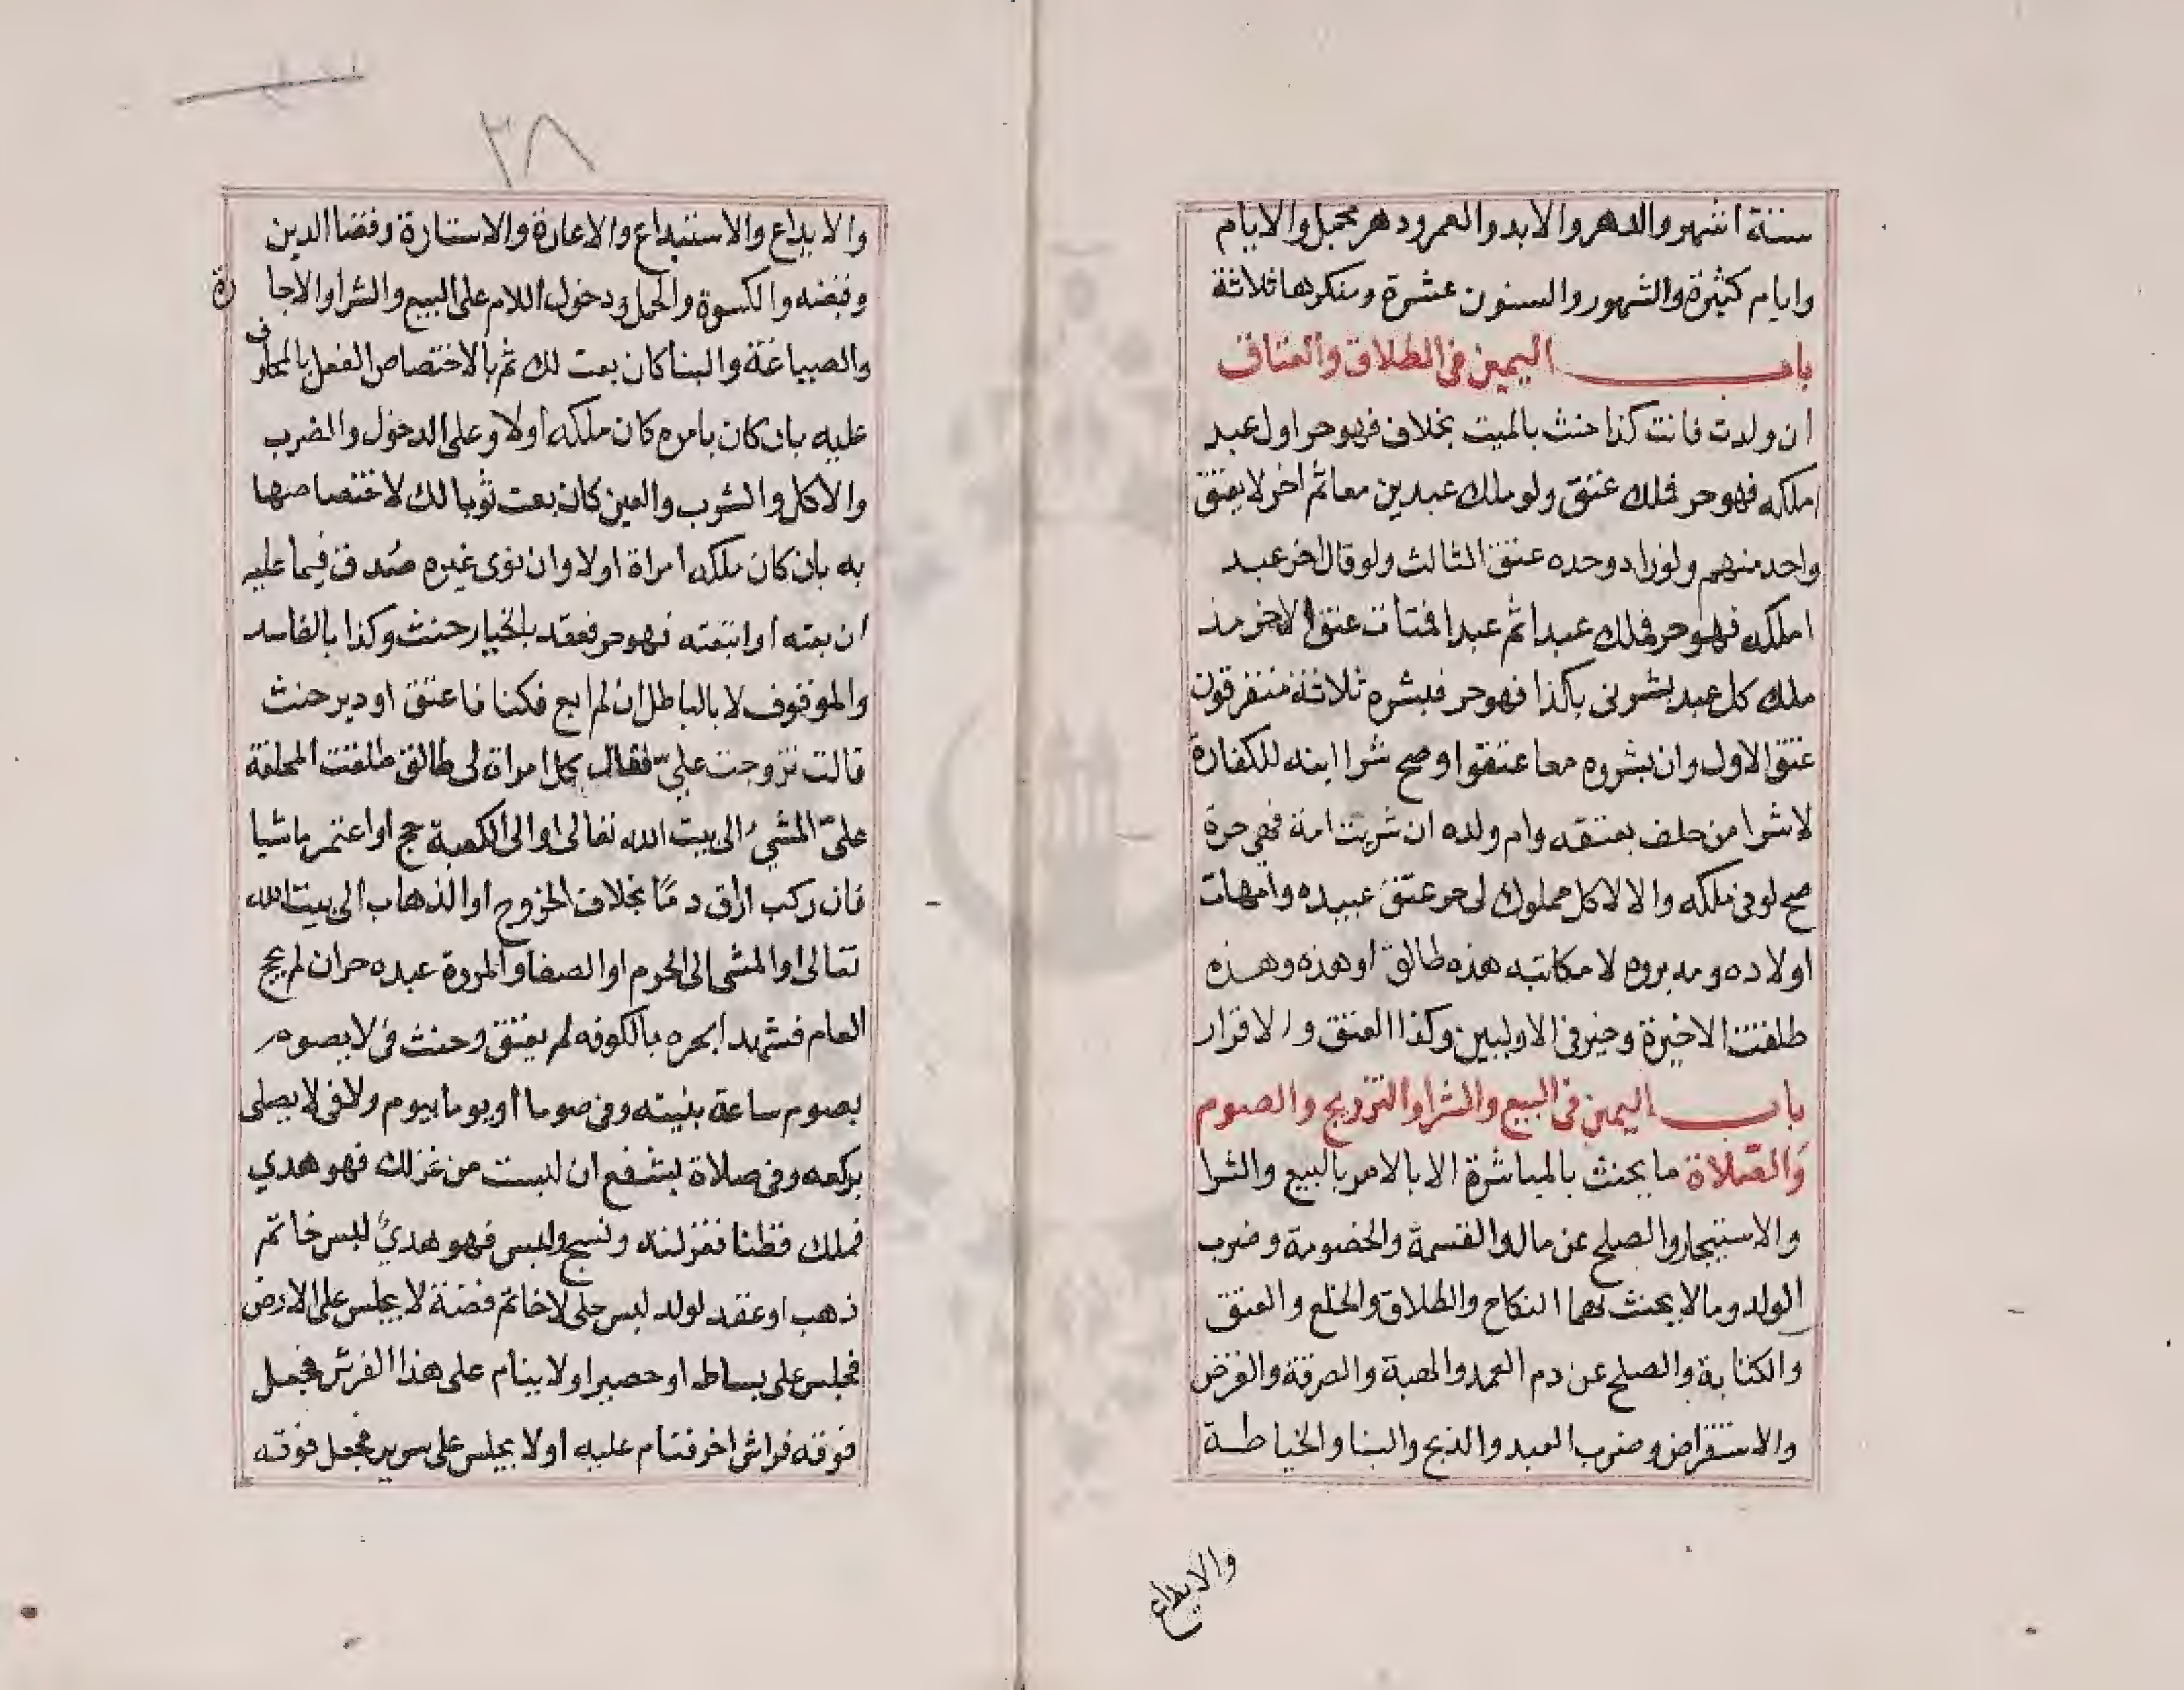 ستة اشهر والدهر والابد والعمر ودهر مجمل والايام
وايام كثيرة والشهور والسنون عشرة ومنكرها ثلاثة
باب اليمين فى الطلاق والعتاق
ان ولدت فانت كذا حنث بالميت بخلاف فهو حر اول عبد
املكه فهو حر فملك عتق ولو ملك عبدين معا ثم اخر لا يعتق
واحد منهم ولو زاد وحده عتق الثالث ولو قال اخر عبد
املكه فهو حر فملك عبدا ثم عبدا فمات عتق الاخر مذ
ملك كل عبد بشرنى بكذا فهو حر فبشره ثلاثة متفرقون
عتق الاول وان بشروه معا عتقوا وصح شرا ابنه للكفارة
لا شرا من حلف بعتقه وام ولده ان شريت امة فهى حرة
صح لو فى ملكه والا لا كل مملوك لى حر عتق عبيده وامهات
اولاده ومدبروه لا مكاتبه هذه طالق او هذه وهذه
طلقت الاخيرة وخير فى الاوليين وكذا العتق والاقرار
باب اليمين فى البيع والشرا والتزويج والصوم
والصلاة ما يحنث بالمباشرة لا بالامر بالبيع والشرا
والاستيجار والصلح عن مال والقسمة والخصومة وضرب
الولد وما لا يحنث بهما النكاح والطلاق والخلع والعتق
والكتابة والصلح عن دم العمد والهبة والصرقة والقرض
والاستقراض وضرب العبد والذبح والبنا والخياطة
والايداع
٣٨
والايداع والاستيداع والاعارة والاستارة وقضا الدين
وقبضه والكسوة والحمل ودخول اللام على البيع والشرا والاجارة
والصياغة والبنا كان بعت لك ثم بالاختصاص الفعل بالمحلوف
عليه بان كان بامره كان ملكه اولا وعلى الدخول والضرب
والاكل والشرب والعين كان بعت ثوبا لك لاختصاصها
به بان كان ملكه امراة اولا وان نوى غيره صدق فيما عليه
ان بعته او ابتعته فهو حر فعقد بالخيار حنث وكذا بالفاسد
والموقوف لا بالباطل ان لم ابع فكنا فاعتق او دبر حنث
قالت تزوجت علي فقال كل امراة لى طالق طلقت المحلفة
علىّ المشي الى بيت الله تعالى او الى الكعبة حج او اعتمر ماشيا
فان ركب اراق دمًا بخلاف الخروج او الذهاب الى بيت الله
تعالى او المشى الى الحرم او الصفا والمروة عبده حر ان لم يحج
العام فشهدا بحره بالكوفه لم يعتق وحنث فى لا يصوم
بصوم ساعة بنيته وفى صوما او يوما بيوم ولا فى لا يصلى
بركعه وفى صلاة بشفع ان لبست من غزلك فهو هدي
فملك قطنا فغزلته ونسج ولبس فهو هديٌ لبس خاتم
ذهب او عقد لولد لبس حلى لا خاتم فضة لا يجلس على الارض
فجلس على بساط او حصير او لا ينام على هذا الفرش فجعل
فوقه فراش اخر فنام عليه او لا يجلس على سرير فجعل فوقه